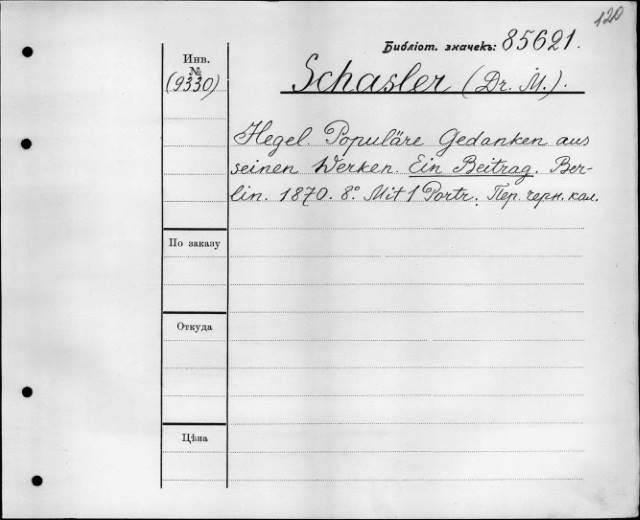 120
Библіот. значекъ: 85621.
Инв.
№
(9330)
Schasler (Dr. M.).
Hegel. Populäre Gedanken aus
seinen Werken. Ein Beitrag. Ber-
lin. 1870. 8° Mit 1 Portr. Пер. черн. кал.
По заказу
Откуда
Цѣна